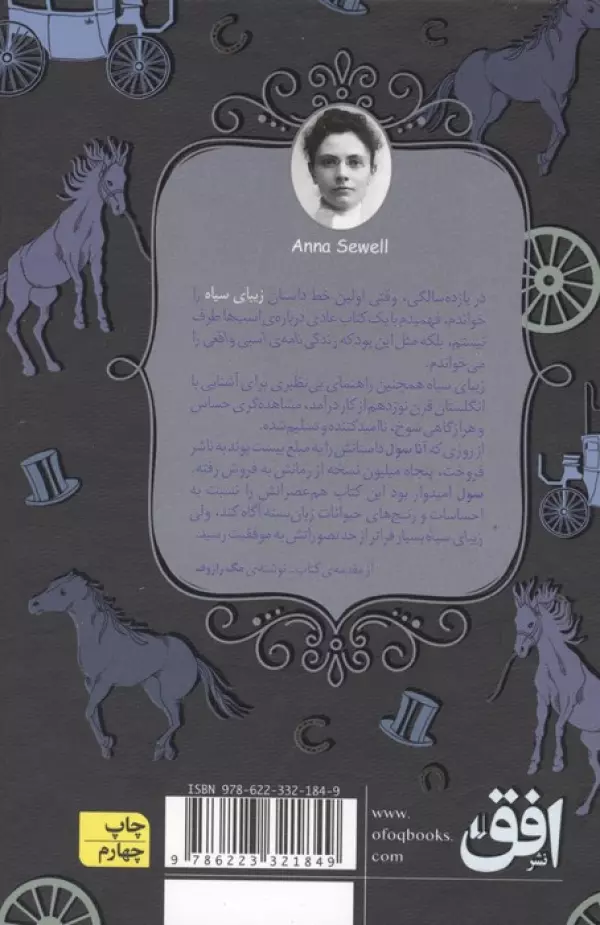 Anna Sewell
در یازده‌سالگی، وقتی اولین خط داستان زیبای سیاه را
خواندم، فهمیدم با یک کتاب عادی درباره‌ی اسب‌ها طرف
نیستم، بلکه مثل این بود که زندگی‌نامه‌ی اسبی واقعی را
می‌خواندم.
زیبای سیاه همچنین راهنمای بی‌نظیری برای آشنایی با
انگلستان قرن نوزدهم از کار درآمد، مشاهده‌گری حساس
و هرازگاهی شوخ، ناامیدکننده و تسلیم‌شده.
از روزی که آنا سول داستانش را به مبلغ بیست پوند به ناشر
فروخت، پنجاه میلیون نسخه از رمانش به فروش رفته.
سول امیدوار بود این کتاب هم‌عصرانش را نسبت به
احساسات و رنج‌های حیوانات زبان‌بسته آگاه کند، ولی
زیبای سیاه بسیار فراتر از حد تصوراتش به موفقیت رسید.
از مقدمه‌ی کتاب، نوشته‌ی مگ رازوف
ISBN 978-622-332-184-9
9 786223 321849
چاپ
چهارم
www.
ofoqbooks.
com
نشر افق